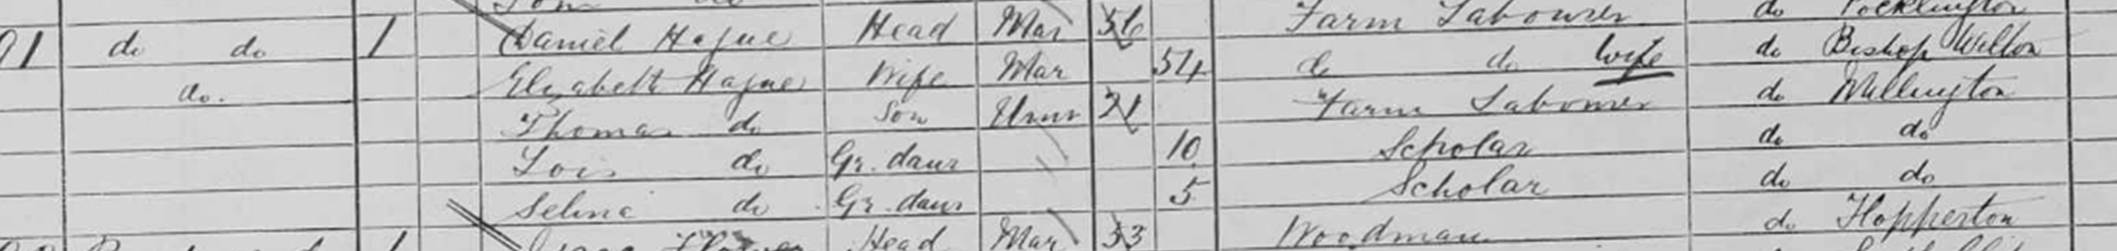 do
91 do do 1 Daniel Hague Head Mar 56 Farm Labourer do Pocklington
do. Elizabeth Hague Wife Mar 54 do do Wife do Bishop Wilton
Thomas do Son Unm 21 Farm Labourer do Millington
Lois do Gr. daur 10 Scholar do do
Selina do Gr. daur 5 Scholar do do
1 Head Mar 53 Woodman do Hopperton